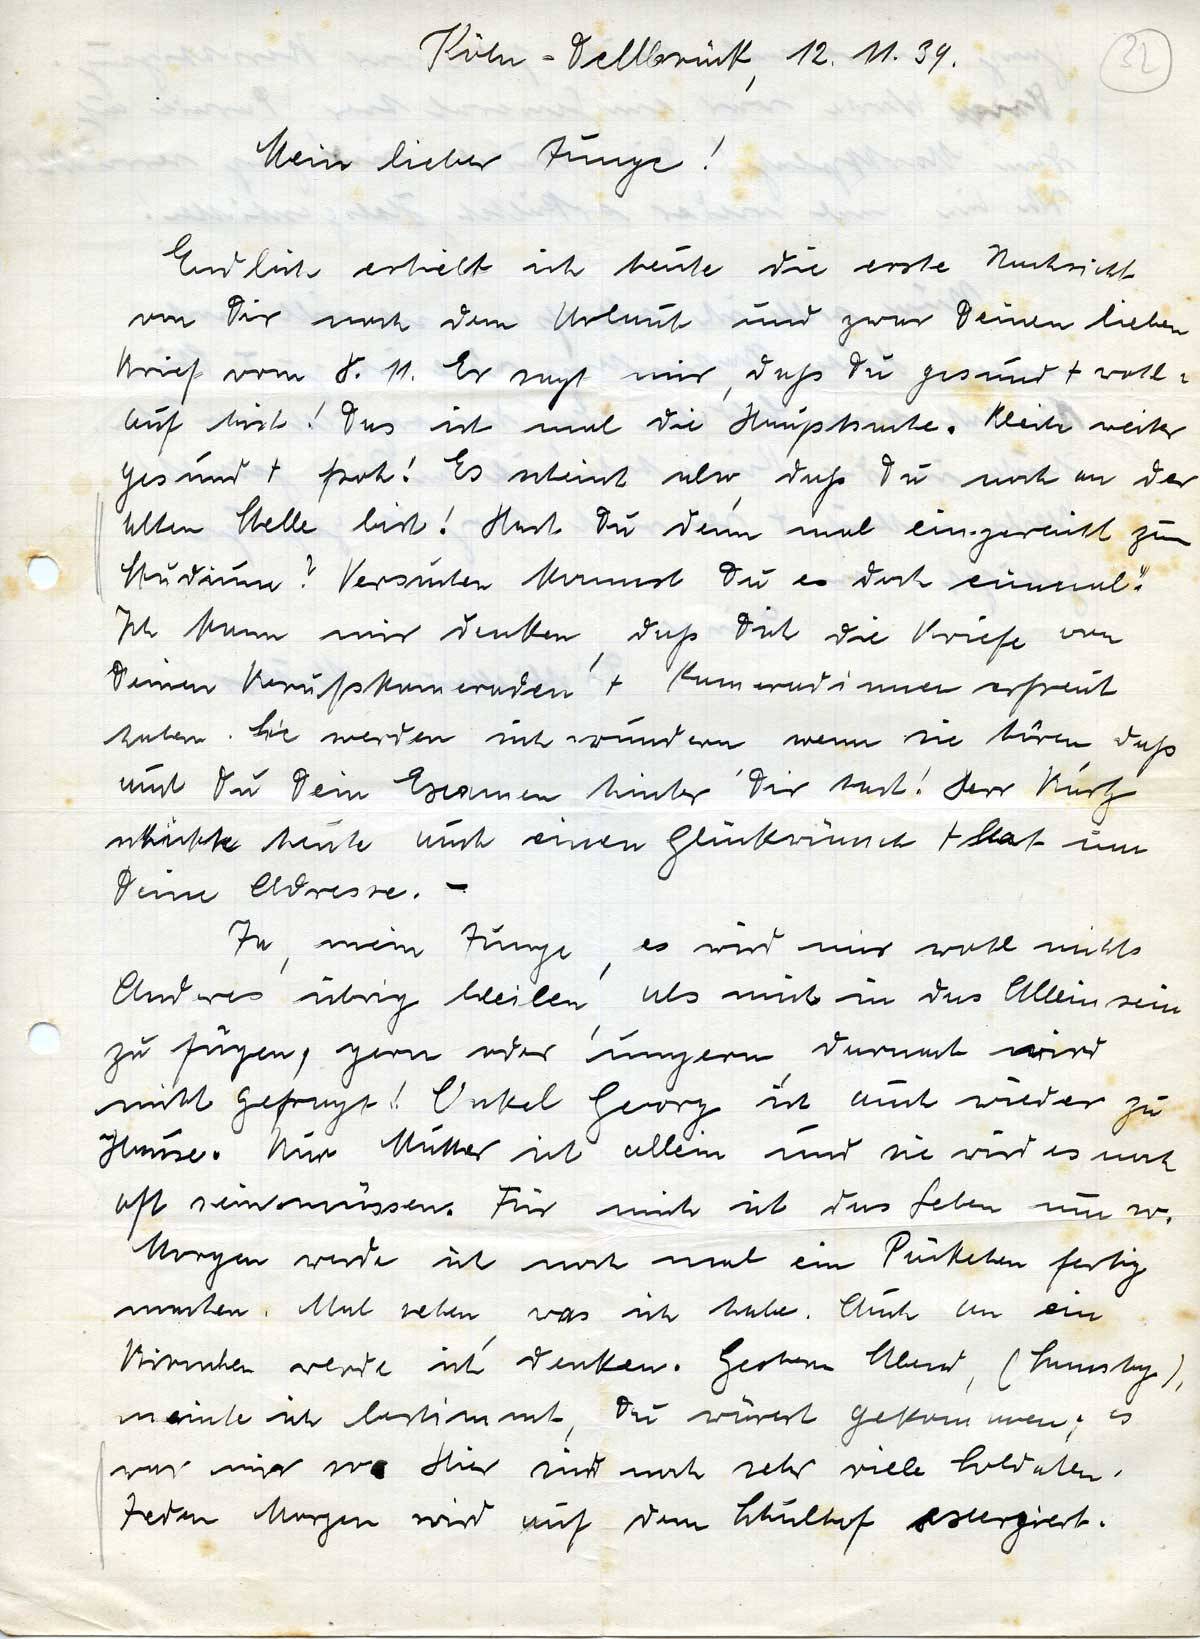 32
Köln-Dellbrück, 12. 11. 39.
Mein lieber Junge!
Endlich erhielt ich heute die erste Nachricht
von Dir nach dem Urlaub und zwar Deinen lieben
Brief vom 8. 11. Er sagt mir, daß Du gesund + wohl-
auf bist! Das ist mal die Hauptsache. Bleib weiter
gesund + froh! Es scheint also, daß Du noch an der
alten Stelle bist! Hast Du denn mal eingereicht zum
Studium? Versuchen kannst Du es doch einmal!
Ich kann mir denken, daß Dich die Briefe von
Deinen Berufskameraden + Kameradinnen erfreut
haben. Sie werden sich wundern wenn sie hören, daß
auch Du Dein Examen hinter Dir hast! Herr Kurtz
schickte heute auch einen Glückwunsch + bat um
Deine Adresse. -
Ja, mein Junge, es wird mir wohl nichts
Anderes übrig bleiben, als mich in das Alleinsein
zu fügen, gern oder ungern, darnach wird
nicht gefragt! Onkel Georg ist auch wieder zu
Hause. Nur Mutter ist allein und sie wird es noch
oft sein müssen. Für mich ist das Leben nun so.
Morgen werde ich noch mal ein Päckchen fertig
machen. Mal sehen was ich habe. Auch an ein
werde ich denken. Gestern Abend, (Samstag),
meinte ich bestimmt, Du wärest gekommen; es
war mir so. Hier sind noch sehr viele Soldaten.
Jeden Morgen wird auf dem Schulhof exerziert.